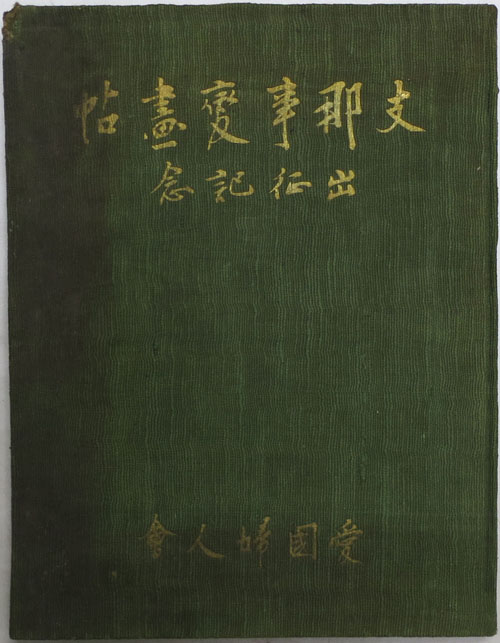 支那事変畫帖
出征記念
愛国婦人會